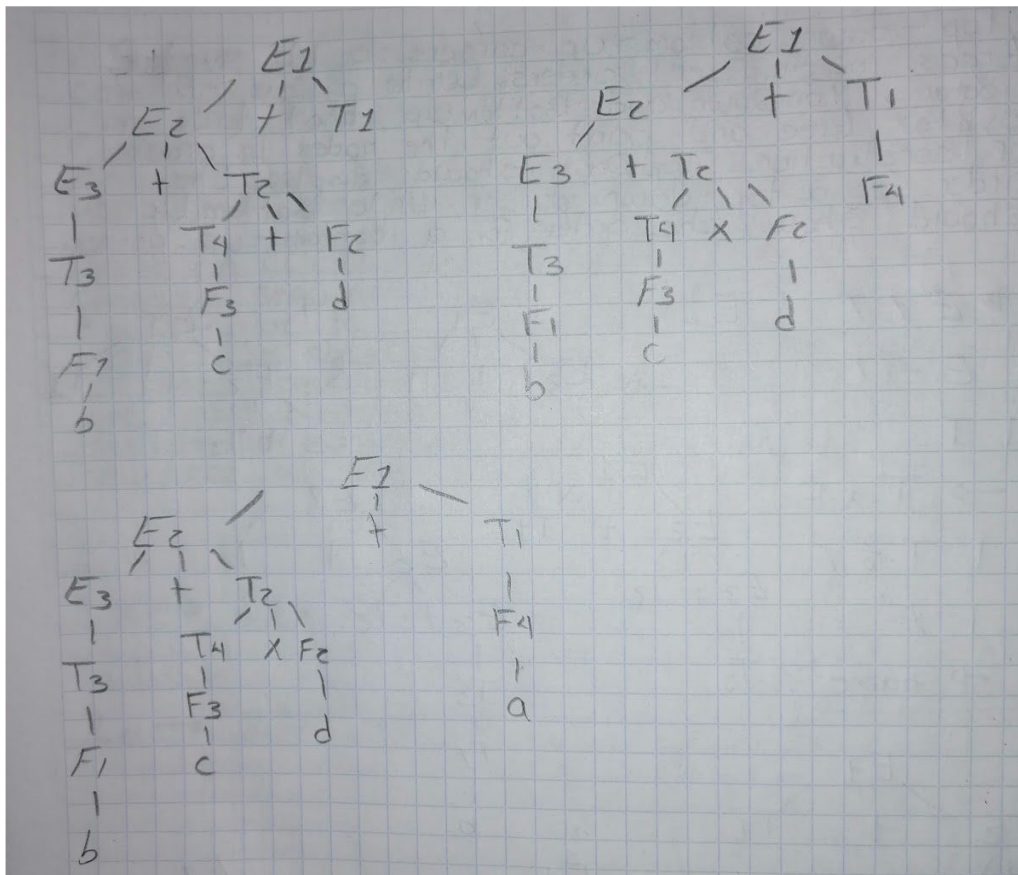 E1
E2 + T1
E3 + T2
T4 + F2
T3
F3 d
F1 c
b
E1
E2 + T1
E3 + T2 F4
T4 x F2
T3
F3 d
F1
c
b
E1
E2 + T1
E3 + T2
T4 x F2 F4
T3
F3 d a
F1 c
b